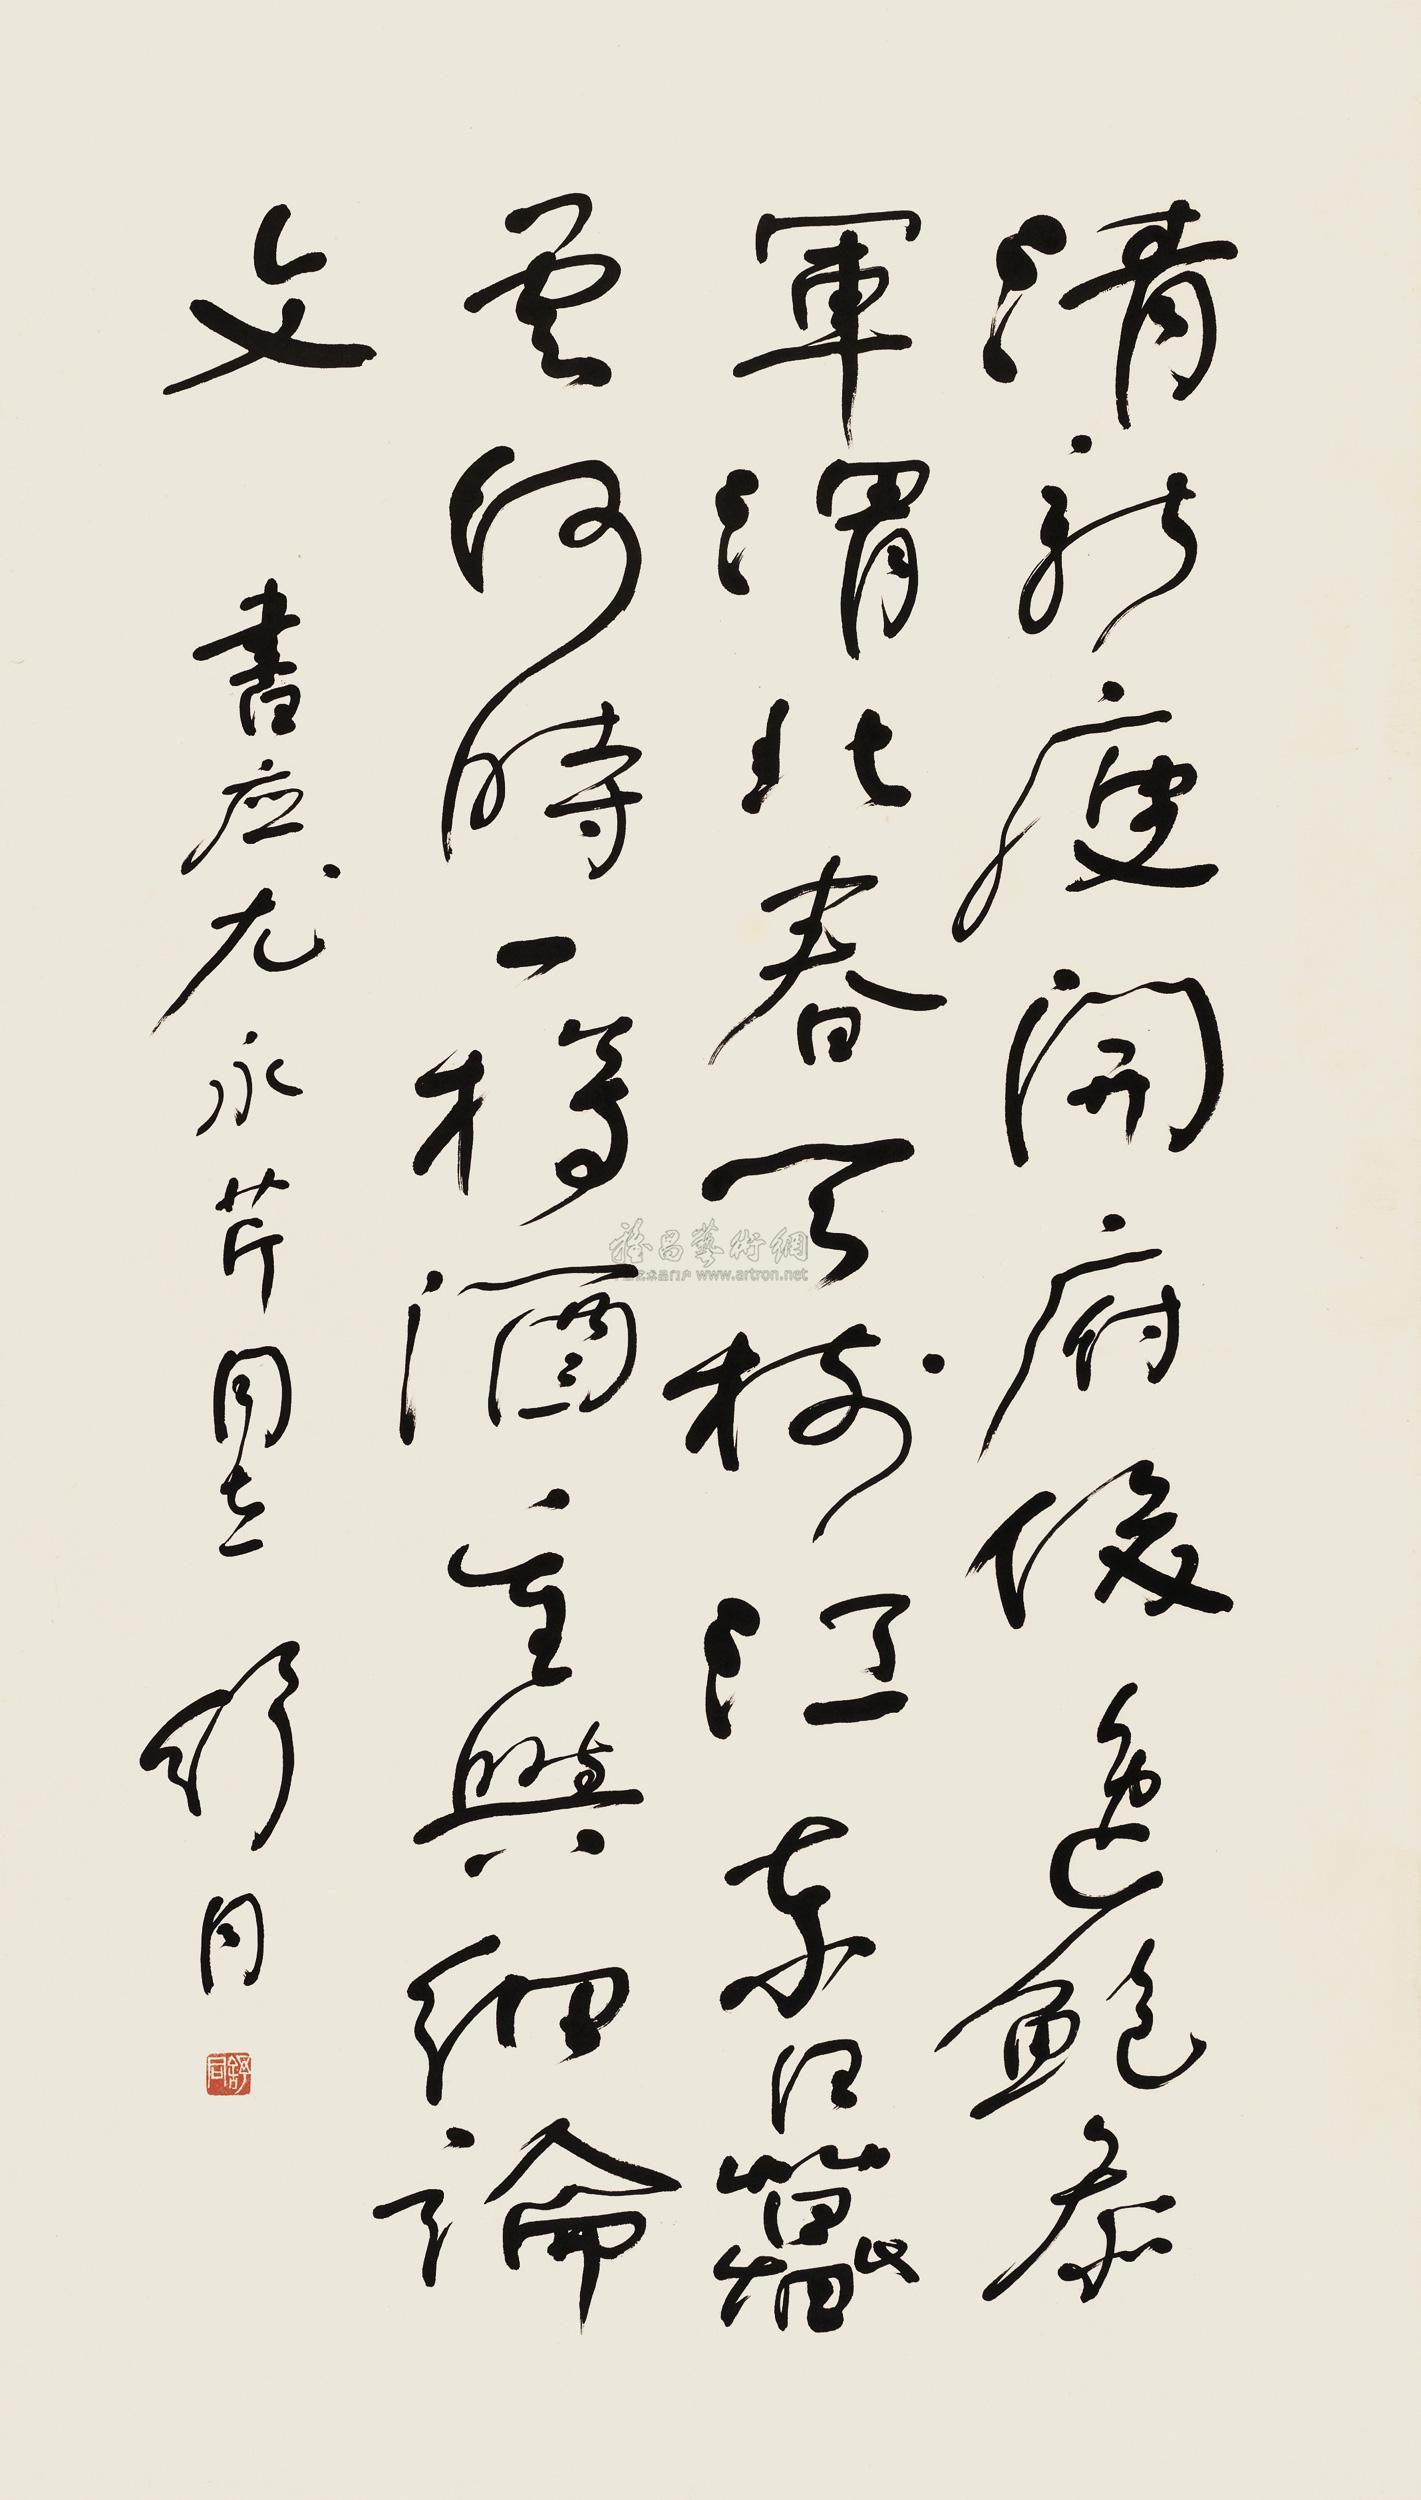 清新庾開府俊逸鮑参
軍渭北春天樹江東日暮
雲何時一樽酒重與細論
文
書应尤永芹同志 舒同
舒同
雅昌藝術網
www.artron.net